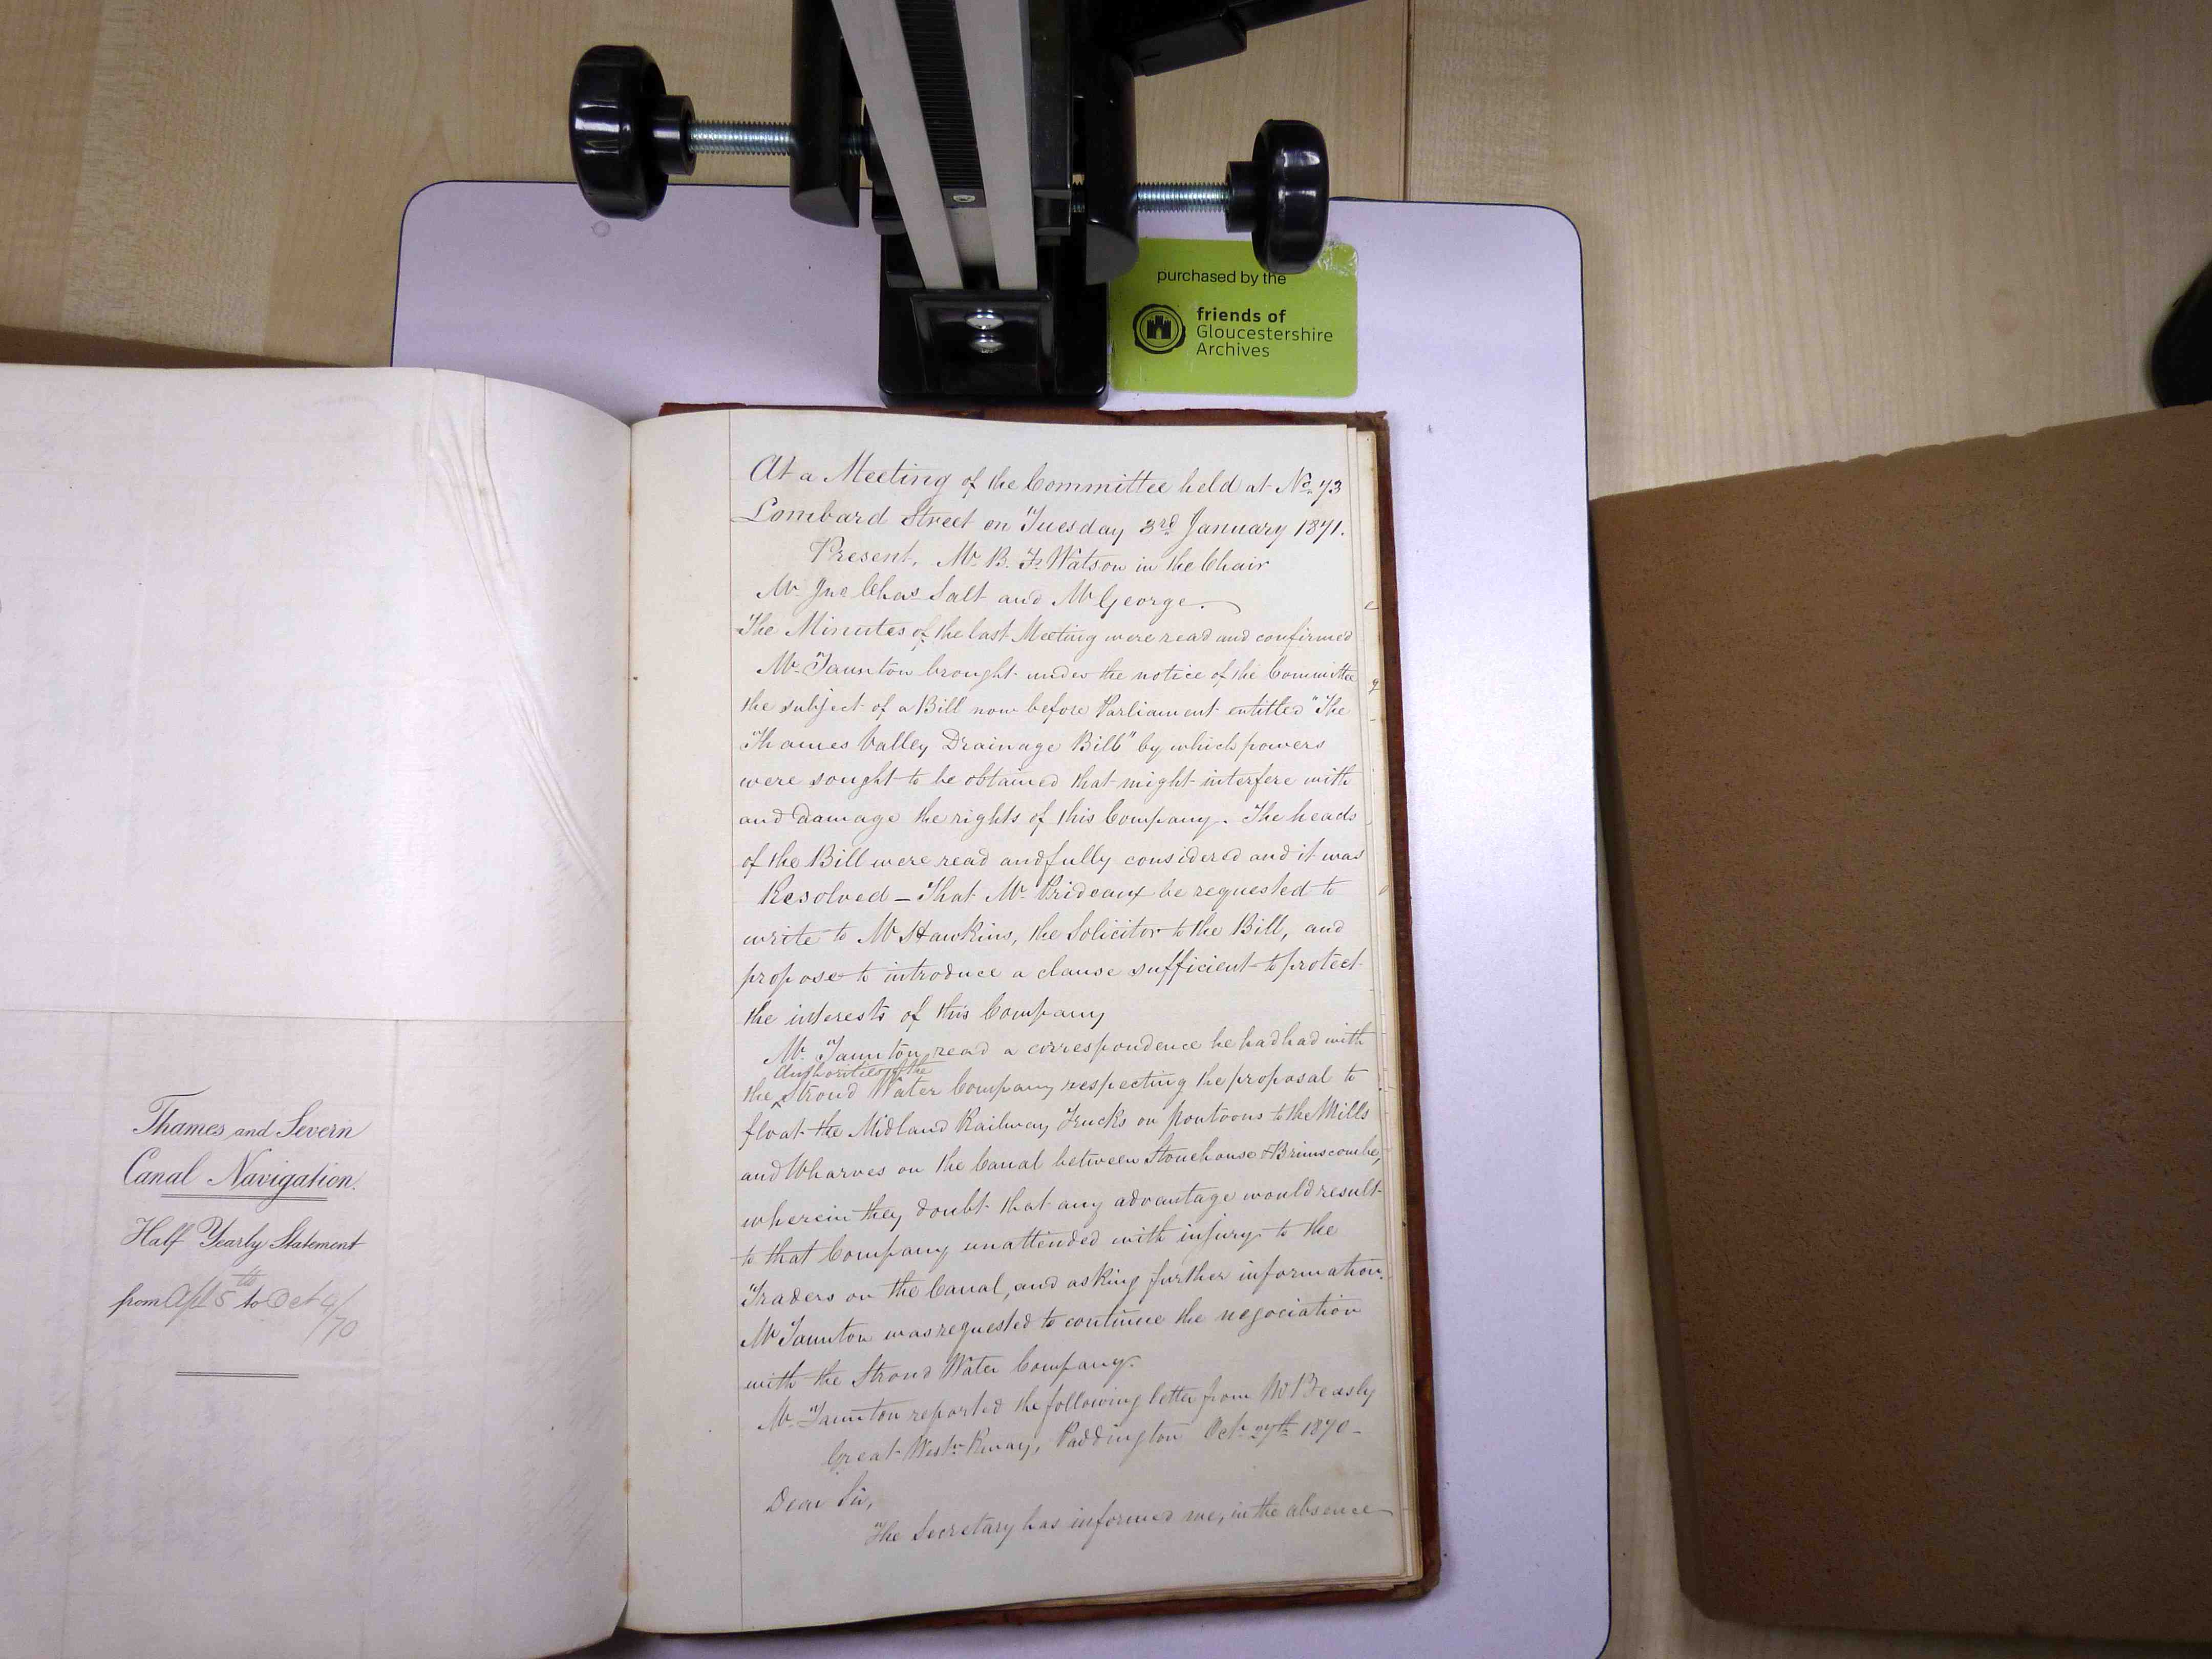 purchased by the
friends of
Gloucestershire
Archives
Thames and Severn
Canal Navigation.
Half Yearly Statement
from Apl 5th to Oct 4/
/70
At a Meeting of the Committee held at No. 73
Lombard Street on Tuesday 3rd January 1871.
Present, Mr. B. Fs Watson in the Chair
Mr Jno Chas Salt and Mr George.
The Minutes of the last Meeting were read and confirmed
Mr Taunton brought under the notice of the Committee
the subject of a Bill now before Parliament entitled "The
Thames Valley Drainage Bill" by which powers
were sought to be obtained that might interfere with
and damage the rights of this Company. The heads
of the Bill were read and fully considered and it was
Resolved – That Mr Prideaux be requested to
write to Mr Hawkins, the Solicitor to the Bill, and
propose to introduce a clause sufficient to protect
the interests of this Company
Mr. Taunton read a correspondence he had had with
Authorities of the
the Stroud Water Company respecting the proposal to
float the Midland Railway Trucks on pontoons to the Mills
and Wharves on the Canal between Stonehouse & Brimscombe,
wherein they doubt that any advantage would result
to that Company unattended with injury to the
Traders on the Canal, and asking further information.
Mr Taunton was requested to continue the negociation
with the Stroud Water Company.
Mr Taunton reported the following letter from Mr Beasly
Great Westn Rway, Paddington Octr 27th 1870 –
Dear Sir,
The Secretary has informed me, in the absence